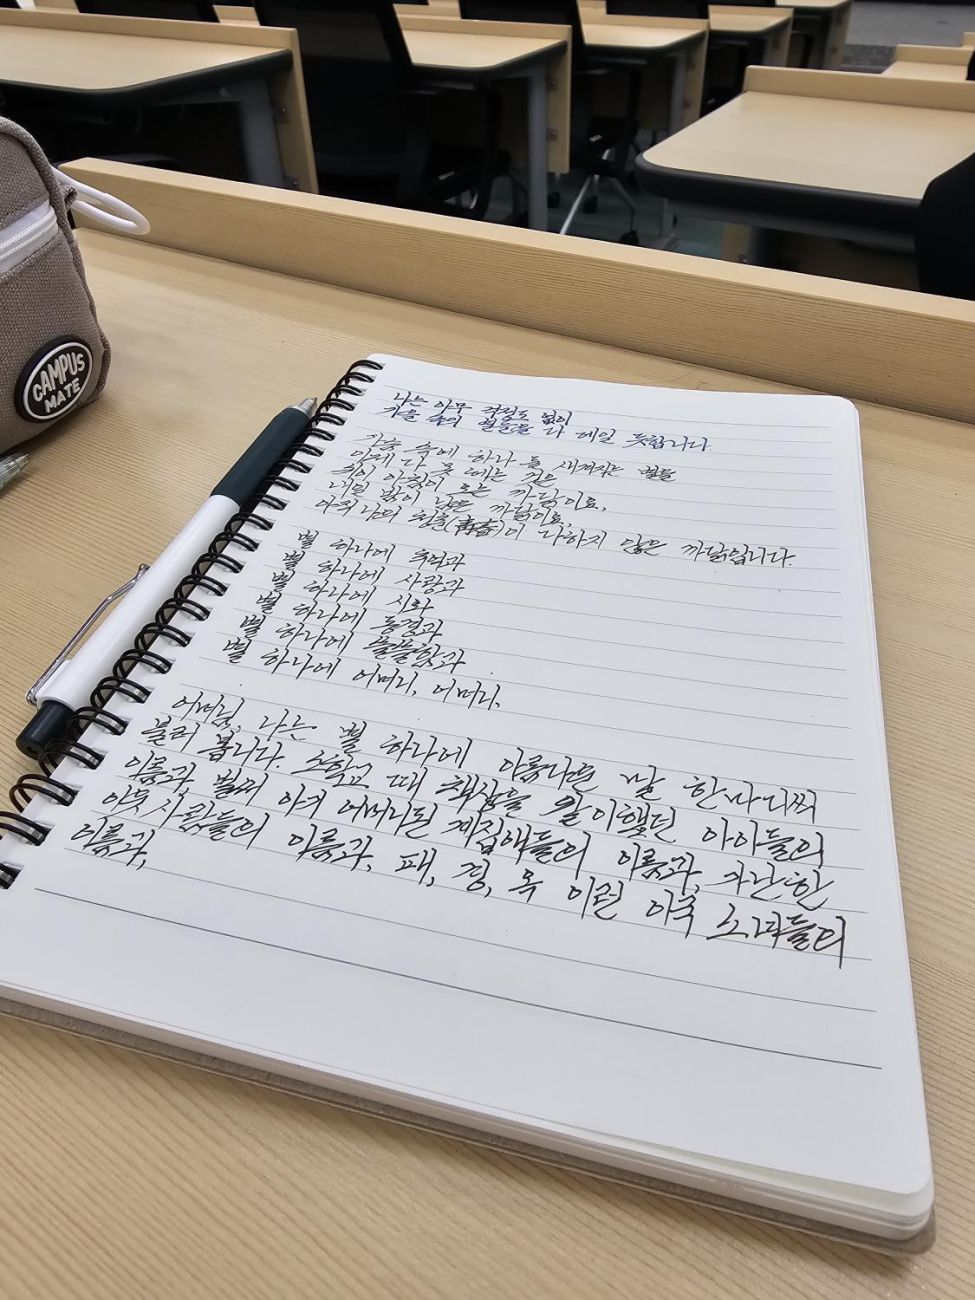 CAMPUS
MATE
나는 아무 걱정도 없이
가을 속의 별들을 다 헤일 듯합니다.
가슴 속에 하나 둘 새겨지는 별을
이제 다 못 헤는 것은
쉬이 아침이 오는 까닭이요,
내일 밤이 남은 까닭이요,
아직 나의 청춘(靑春)이 다하지 않은 까닭입니다.
별 하나에 추억과
별 하나에 사랑과
별 하나에 시와
별 하나에 동경과
별 하나에 쓸쓸함과
별 하나에 어머니, 어머니,
어머님, 나는 별 하나에 아름다운 말 한마디씩
불러 봅니다. 소학교 때 책상을 같이했던 아이들의
이름과, 벌써 아기 어머니된 계집애들의 이름과, 가난한
이웃 사람들의 이름과, 패, 경, 옥 이런 이국 소녀들의
이름과,